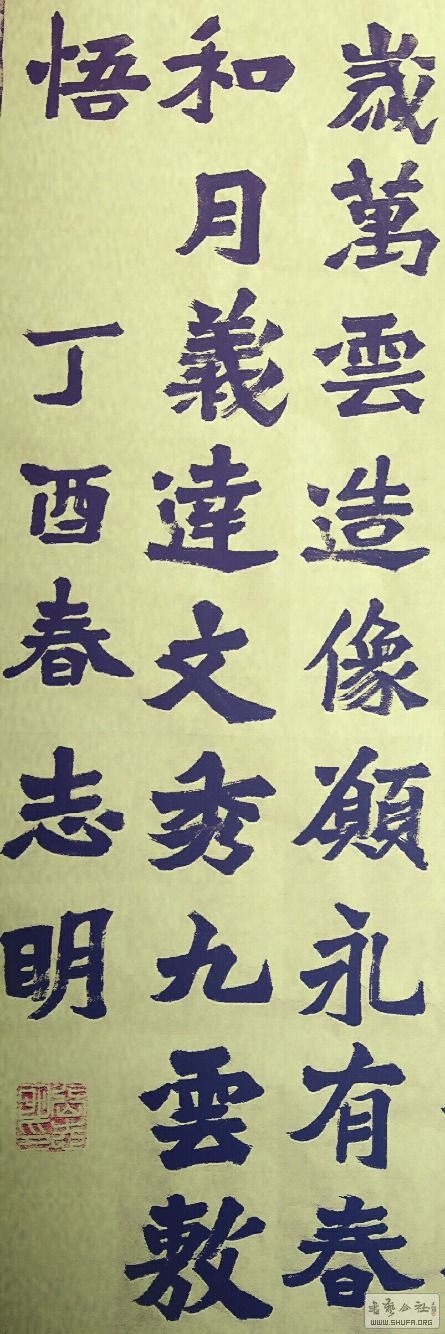 歲萬雲造像願永有春
和月義達文秀九雲敷
悟
丁酉春志明
書藝公社
WWW.SHUFA.ORG